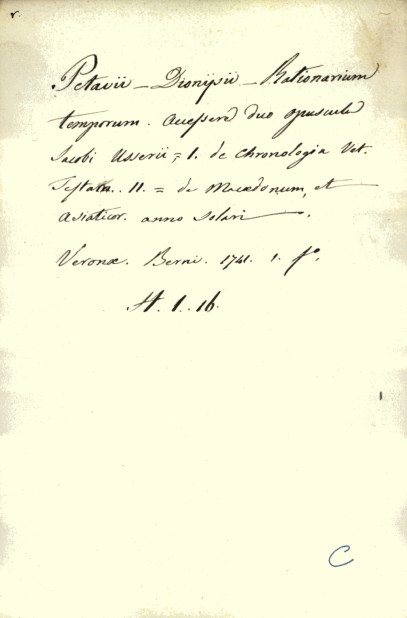 Petavii – Dionysii – Rationarium
temporum. Accessere duo opuscula
Jacobi Usserii = 1. de Chronologia Vet.
Testam. 11. = de Macedonum, et
Asiaticor. anno solari.
Veronæ. Berni. 1741. 1. fo.
H. 1. 16.
C